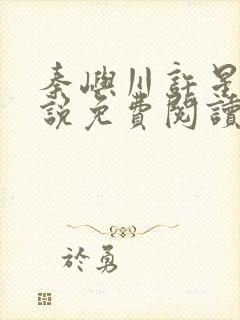 秦嶼川許星
說免費閱讀
於勇